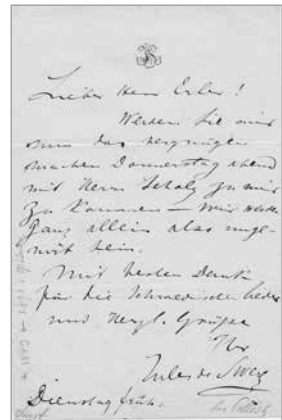 Lieber Herr Erler!
Werden Sie mir
nun das Vergnügen
machen Donnerstag abend
mit Herrn Scholz zu mir
zu kommen – wir
ganz allein also unge-
nirt sein.
Mit besten Dank
für die Schwedischen Lieder
und Herzl. Grüße
Ihr
Jules de Swert
Dienstag früh.